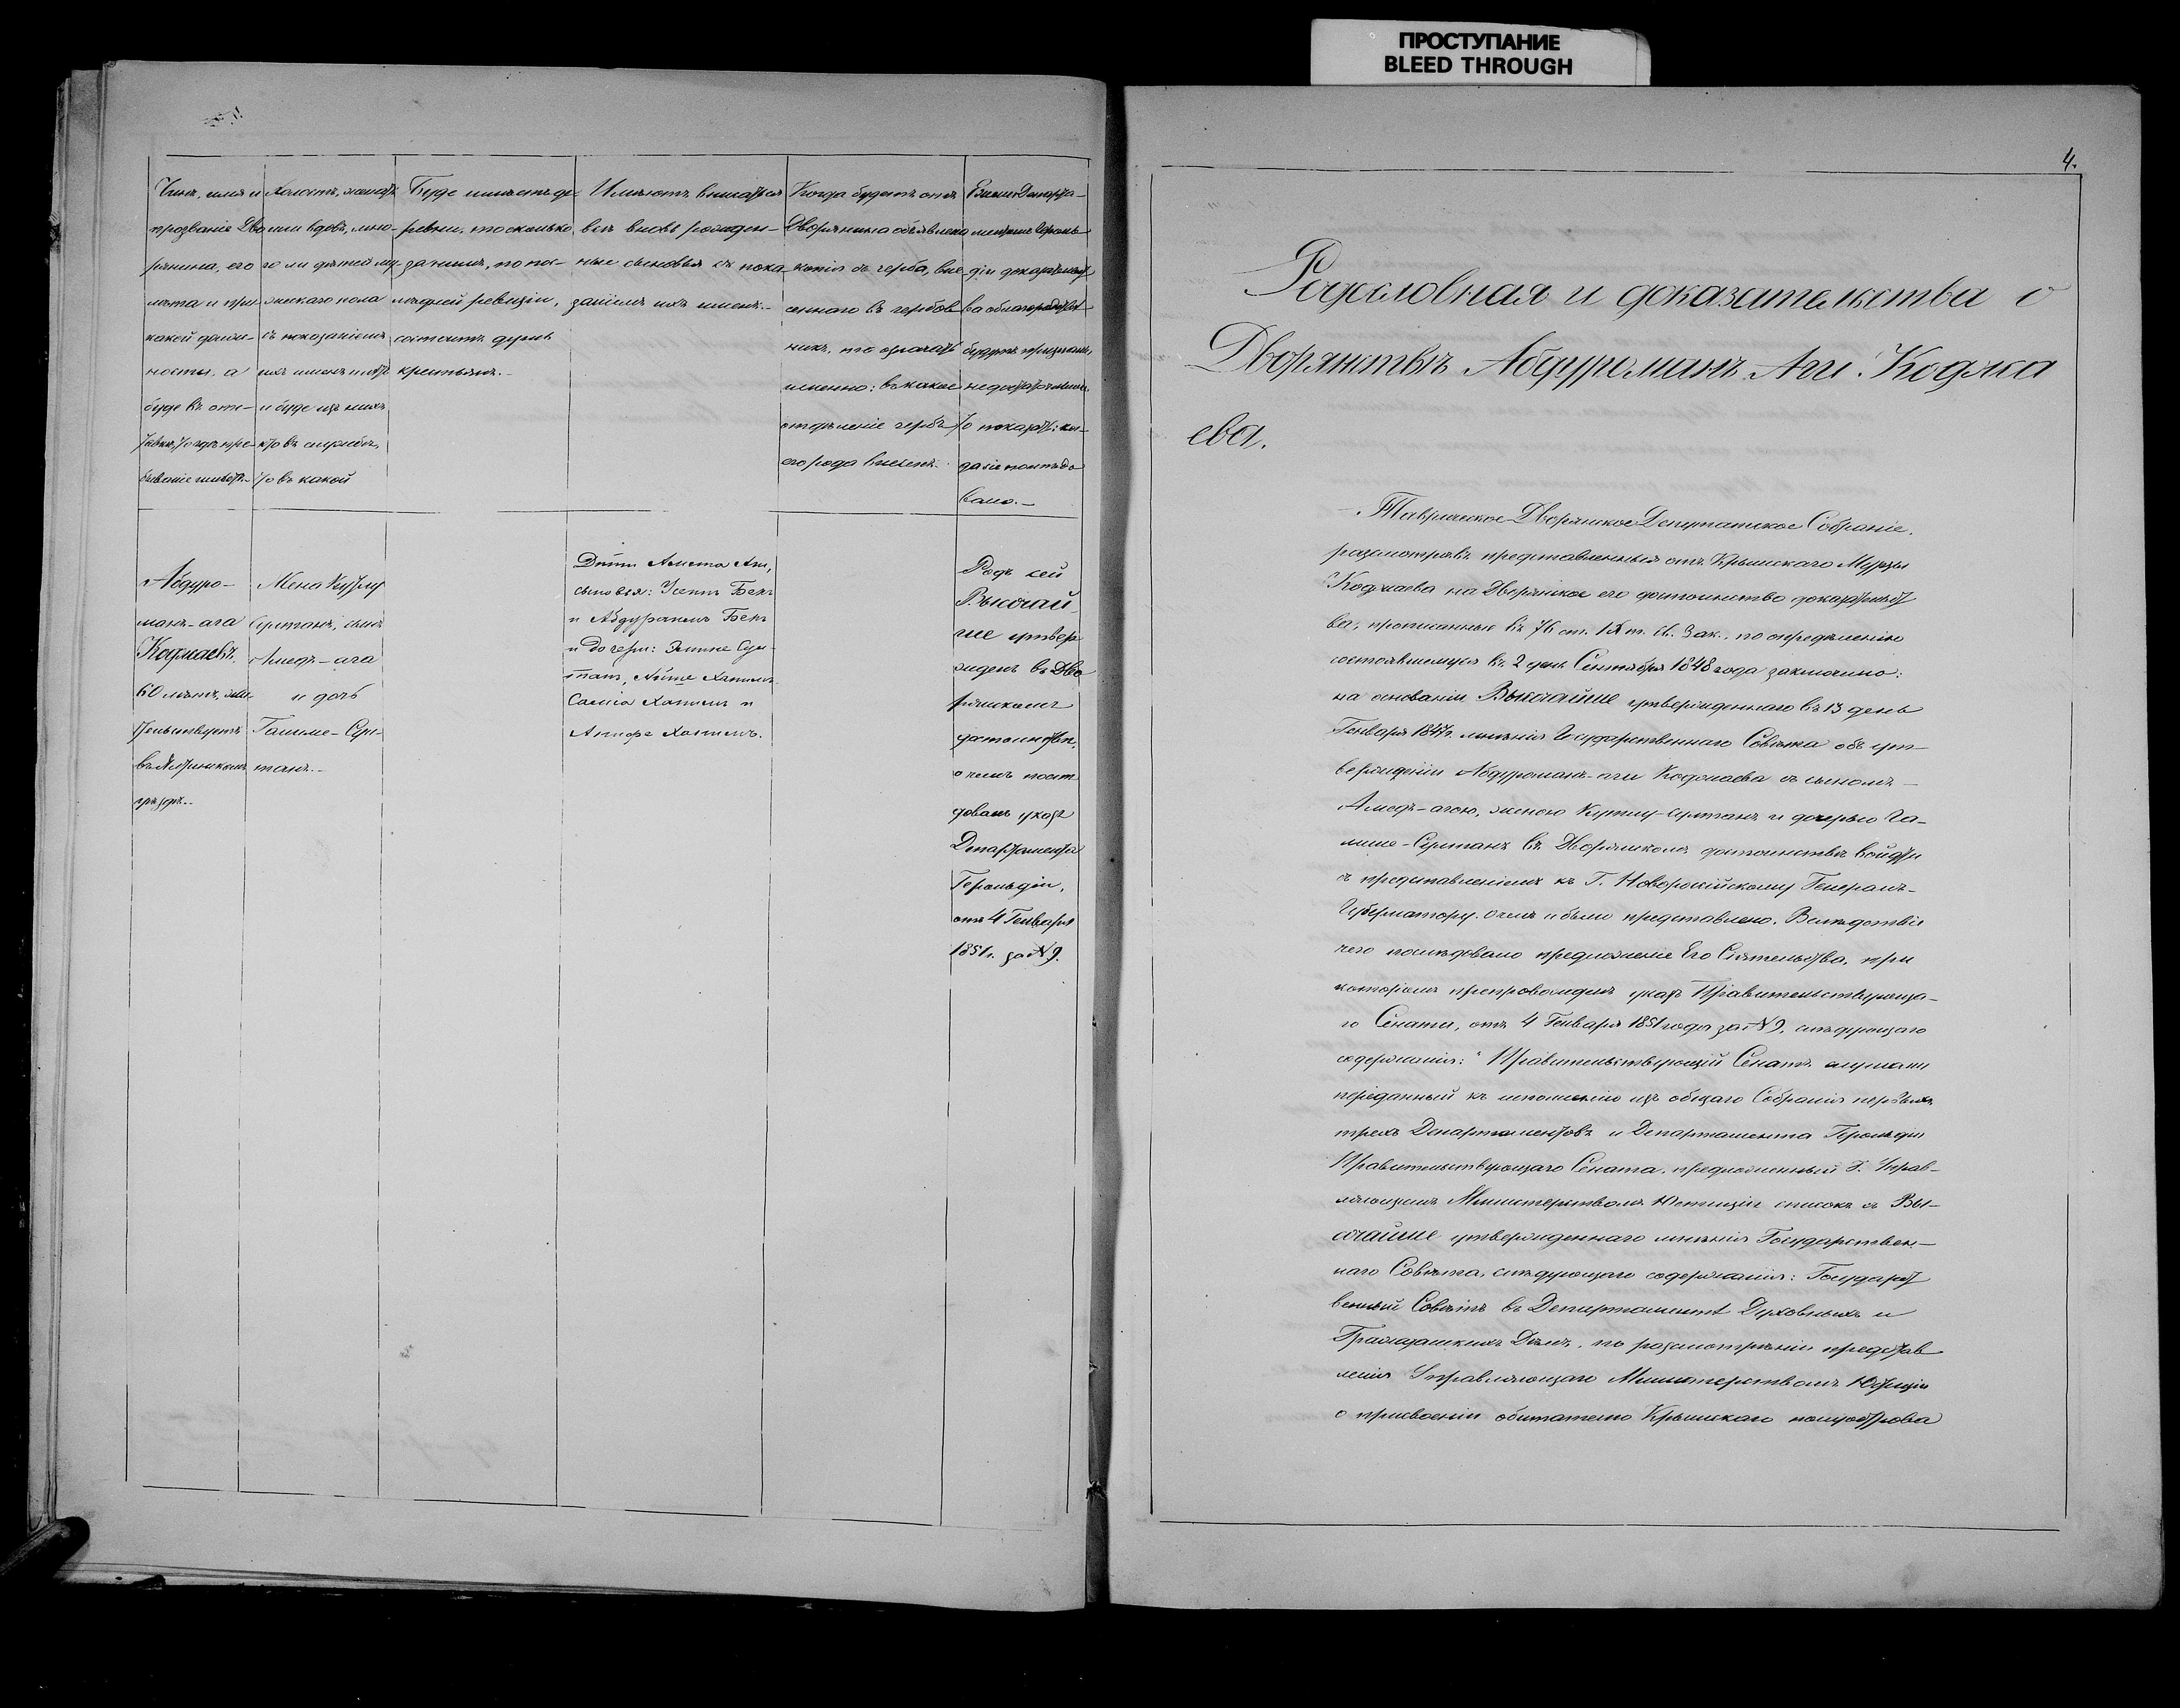 ПРОСТУПАНИЕ
BLEED THROUGH
Чинъ, имя и
прозваніе Дво
рянина, его
лѣта и при
какой долж-
ности, а
буде въ от-
ставкѣ, то гдѣ пре-
бываніе имѣетъ.
Холостъ, женатъ
или вдовъ, мно-
го ли дѣтей му-
жескаго пола
съ показаніемъ
ихъ именъ и лѣтъ
и буде изъ нихъ
кто въ службѣ,
то въ какой
Буде имѣетъ де-
ревни, то сколько
за нимъ, по по-
слѣдней ревизіи,
состоитъ душъ
крестьянъ.
Имѣютъ вписаться
всѣ вновь рожден-
ные сыновья съ пока
заніемъ ихъ именъ.
Когда будетъ отъ
Дворянина объявлена
копія съ герба, вне-
сеннаго въ гербов
никъ, то означать
именно: въ какое
отдѣленіе гербъ
его рода внесенъ.
Если Департа-
ментомъ Героль
діи доказательст
ва о благородствѣ
будутъ признаны
недостаточными,
то показать: ког-
да сіе послѣдо
вало.
Абдуро-
манъ-ага
Коджаевъ.
60 лѣтъ, жи-
тельствуетъ
въ Ялтинскомъ
уѣздѣ.
Жена Кутлу
Султанъ, сынъ
Амедъ-ага
и дочь
Гальме-Сул-
танъ.
Дѣти Амета Аги,
сыновья: Усеинъ Бекъ
и Абдураимъ Бекъ
и дочери: Эмине Сул-
танъ, Айше Ханымъ
Саліа Ханымъ и
Атифе Ханымъ.
Родъ сей
Высочай
ше утвер
жденъ въ Дво
рянскомъ
достоинствѣ,
о чемъ послѣ
дованъ указъ
Департамента
Герольдіи,
отъ 4 Генваря
1851 г. за №9.
4.
Родословная и доказательства о
Дворянствѣ Абдуроманъ Аги Коджа
ева.
Таврическое Дворянское Депутатское Собраніе,
разсмотрѣвъ представленныя отъ Крымскаго Мурзы
Коджаева на Дворянское его достоинство доказательст
ва, прописанныя въ 76 ст. IX т. Св. Зак., по опредѣленію
состоявшемуся въ 2 день Сентября 1848 года заключило:
на основаніи Высочайше утвержденнаго въ 13 день
Генваря 1847 г. мнѣнія Государственнаго Совѣта объ ут-
вержденіи Абдуроманъ-аги Коджаева съ сыномъ
Амедъ-агою, женою Кутлу-Султанъ и дочерью Га-
льме-Султанъ въ Дворянскомъ достоинствѣ войдти
съ представленіемъ къ Г. Новороссійскому Генералъ-
Губернатору. о чемъ и было представлено. Вслѣдствіе
чего послѣдовало предложеніе Его Сіятельства, при
которомъ препровожденъ указъ Правительствующа-
го Сената, отъ 4 Генваря 1851 года за №9, слѣдующаго
содержанія: "Правительствующій Сенатъ слушали
переданный къ исполненію изъ общаго Собранія первыхъ
трехъ Департаментовъ и Департамента Герольдіи
Правительствующаго Сената, предложенный Г. Управ-
ляющимъ Министерствомъ Юстиціи списокъ съ Вы-
сочайше утвержденнаго мнѣнія Государствен-
наго Совѣта, слѣдующаго содержанія: Государст
венный Совѣтъ въ Департаментѣ Духовныхъ и
Гражданскихъ Дѣлъ, по разсмотрѣніи представ
ленія Управляющаго Министерствомъ Юстиціи
о присвоеніи обитателю Крымскаго полуострова